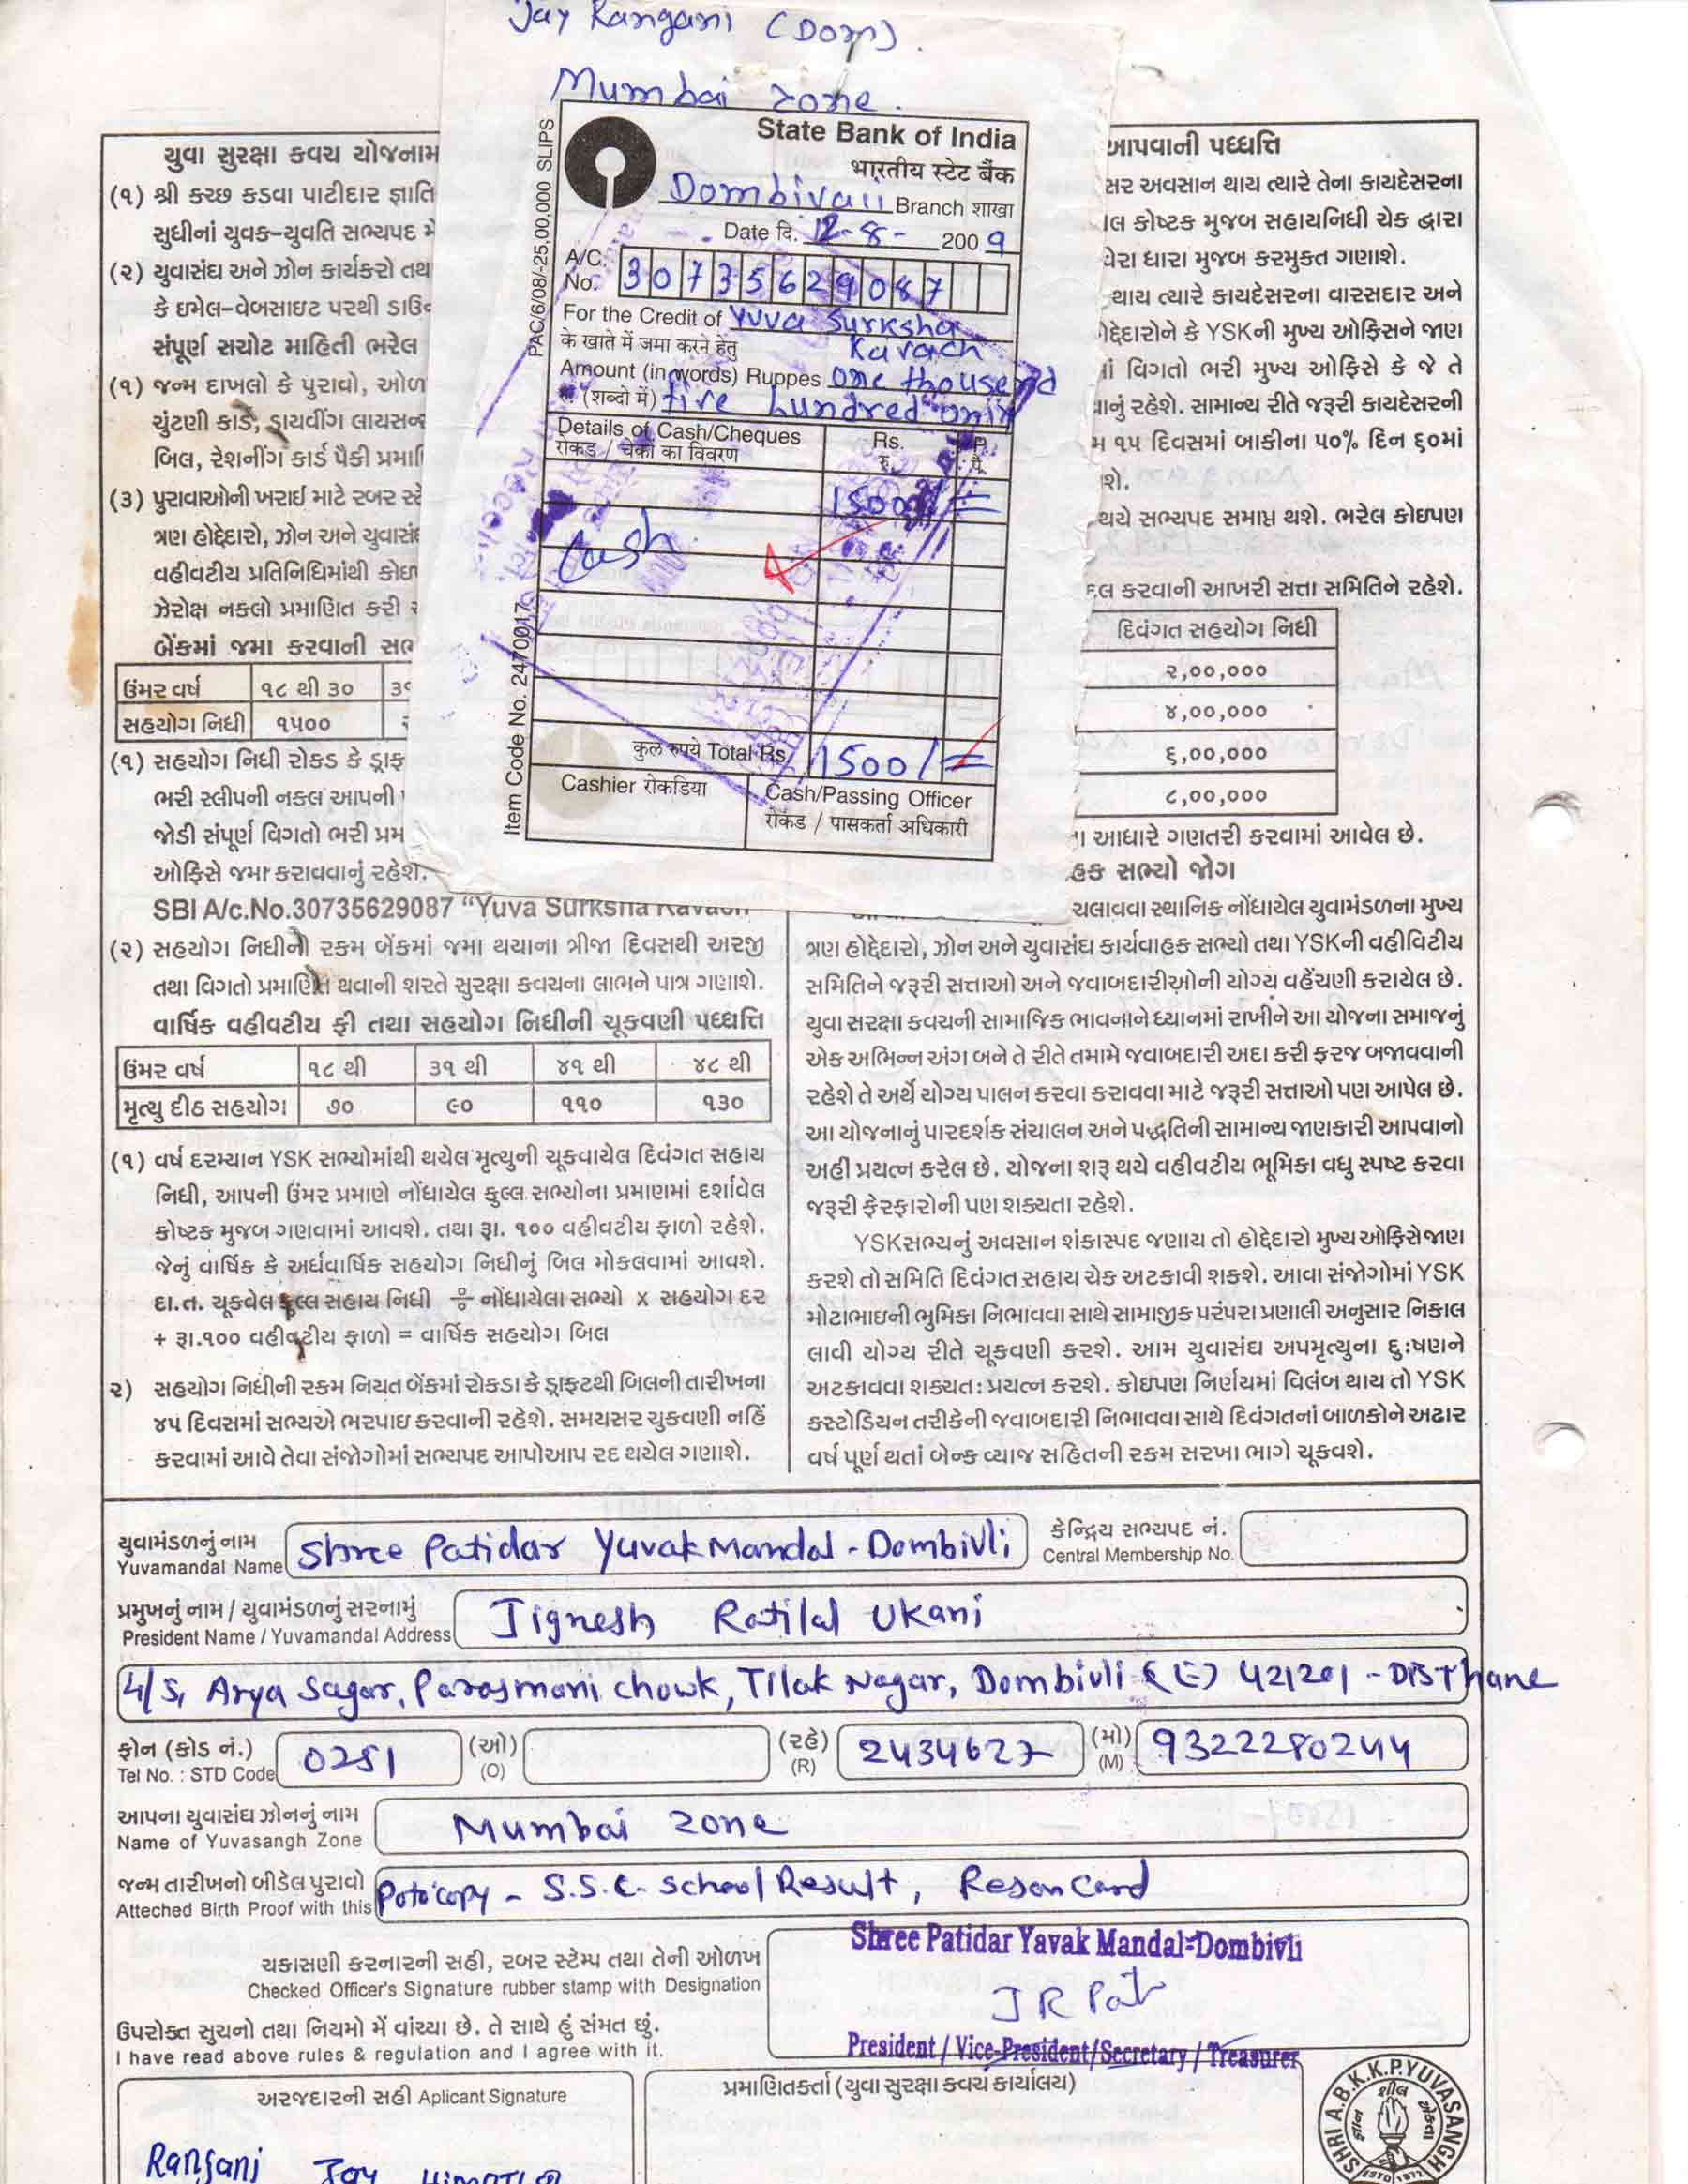 Jay Rangani (Dom).
Mumbai zone.
State Bank of India
भारतीय स्टेट बैंक
Dombivali Branch शाखा
Date दि. 12-8- 2009
A/C. No. 30735629087
For the Credit of Yuva Surksha
के खाते में जमा करने हेतु Kavach
Amount (in words) Ruppes one thousend
रु. (शब्दो में) five hundred only
Details of Cash/Cheques Rs. P.
रोकड / चेकों का विवरण रु. पै.
1500/=
Cash
कुल रुपये Total Rs. 1500/=
Cashier रोकडिया
Cash/Passing Officer
रोकड / पासकर्ता अधिकारी
PAC/6/08/-25,00,000 SLIPS
Item Code No. 2470017
યુવા સુરક્ષા કવચ યોજનામ
(૧) શ્રી કચ્છ કડવા પાટીદાર જ્ઞાતિ
સુધીનાં યુવક-યુવતિ સભ્યપદ મે
(૨) યુવાસંઘ અને ઝોન કાર્યકરો તથ
કે ઇમેલ-વેબસાઇટ પરથી ડાઉ
સંપૂર્ણ સચોટ માહિતી ભરેલ
(૧) જન્મ દાખલો કે પુરાવો, ઓળ
ચુંટણી કાર્ડ, ડ્રાયવીંગ લાયસન્
બિલ, રેશનીંગ કાર્ડ પૈકી પ્રમા
(૩) પુરાવાઓની ખરાઈ માટે રબર સ્ટે
ત્રણ હોદ્દેદારો, ઝોન અને યુવાસં
વહીવટીય પ્રતિનિધિમાંથી કોઇ
ઝેરોક્ષ નકલો પ્રમાણિત કરી
બેંકમાં જમા કરવાની સભ
ઉંમર વર્ષ ૧૮ થી ૩૦
સહયોગ નિધી ૧૫૦૦
(૧) સહયોગ નિધી રોકડ કે ડ્રાફ
ભરી સ્લીપની નકલ આપની
જોડી સંપૂર્ણ વિગતો ભરી પ્રમ
ઓફિસે જમા કરાવવાનું રહેશે.
SBI A/c.No.30735629087 "Yuva Surksha Kavach
(૨) સહયોગ નિધીની રકમ બેંકમાં જમા થયાના ત્રીજા દિવસથી અરજી
તથા વિગતો પ્રમાણિત થવાની શરતે સુરક્ષા કવચના લાભને પાત્ર ગણાશે.
વાર્ષિક વહીવટીય ફી તથા સહયોગ નિધીની ચૂકવણી પધ્ધતિ
ઉંમર વર્ષ ૧૮ થી ૩૧ થી ૪૧ થી ૪૮ થી
મૃત્યુ દીઠ સહયોગ ૭૦ ૯૦ ૧૧૦ ૧૩૦
(૧) વર્ષ દરમ્યાન YSK સભ્યોમાંથી થયેલ મૃત્યુની ચૂકવાયેલ દિવંગત સહાય
નિધી, આપની ઉંમર પ્રમાણે નોંધાયેલ કુલ્લ સભ્યોના પ્રમાણમાં દર્શાવેલ
કોષ્ટક મુજબ ગણવામાં આવશે. તથા રૂા. ૧૦૦ વહીવટીય ફાળો રહેશે.
જેનું વાર્ષિક કે અર્ધવાર્ષિક સહયોગ નિધીનું બિલ મોકલવામાં આવશે.
દા.ત. ચૂકવેલ કુલ્લ સહાય નિધી ÷ નોંધાયેલા સભ્યો x સહયોગ દર
+ રૂા.૧૦૦ વહીવટીય ફાળો = વાર્ષિક સહયોગ બિલ
૨) સહયોગ નિધીની રકમ નિયત બેંકમાં રોકડા કે ડ્રાફટથી બિલની તારીખના
૪૫ દિવસમાં સભ્યએ ભરપાઇ કરવાની રહેશે. સમયસર ચુકવણી નહિં
કરવામાં આવે તેવા સંજોગોમાં સભ્યપદ આપોઆપ રદ થયેલ ગણાશે.
આપવાની પધ્ધતિ
સર અવસાન થાય ત્યારે તેના કાયદેસરના
લ કોષ્ટક મુજબ સહાયનિધી ચેક દ્વારા
વેરા ધારા મુજબ કરમુક્ત ગણાશે.
થાય ત્યારે કાયદેસરના વારસદાર અને
હોદ્દેદારોને કે YSKની મુખ્ય ઓફિસને જાણ
વિગતો ભરી મુખ્ય ઓફિસે કે જે તે
વાનું રહેશે. સામાન્ય રીતે જરૂરી કાયદેસરની
મ ૧૫ દિવસમાં બાકીના ૫૦% દિન ૬૦માં
શે.
થયે સભ્યપદ સમાપ્ત થશે. ભરેલ કોઇપણ
કલ કરવાની આખરી સત્તા સમિતિને રહેશે.
દિવંગત સહયોગ નિધી
૨,૦૦,૦૦૦
૪,૦૦,૦૦૦
૬,૦૦,૦૦૦
૮,૦૦,૦૦૦
ા આધારે ગણતરી કરવામાં આવેલ છે.
હક સભ્યો જોગ
ચલાવવા સ્થાનિક નોંધાયેલ યુવામંડળના મુખ્ય
ત્રણ હોદ્દેદારો, ઝોન અને યુવાસંઘ કાર્યવાહક સભ્યો તથા YSKની વહીવિટીય
સમિતિને જરૂરી સત્તાઓ અને જવાબદારીઓની યોગ્ય વહેંચણી કરાયેલ છે.
યુવા સરક્ષા કવચની સામાજિક ભાવનાને ધ્યાનમાં રાખીને આ યોજના સમાજનું
એક અભિન્ન અંગ બને તે રીતે તમામે જવાબદારી અદા કરી ફરજ બજાવવાની
રહેશે તે અર્થે યોગ્ય પાલન કરવા કરાવવા માટે જરૂરી સત્તાઓ પણ આપેલ છે.
આ યોજનાનું પારદર્શક સંચાલન અને પદ્ધતિની સામાન્ય જાણકારી આપવાનો
અહીં પ્રયત્ન કરેલ છે. યોજના શરૂ થયે વહીવટીય ભૂમિકા વધુ સ્પષ્ટ કરવા
જરૂરી ફેરફારોની પણ શક્યતા રહેશે.
YSKસભ્યનું અવસાન શંકાસ્પદ જણાય તો હોદ્દેદારો મુખ્ય ઓફિસે જાણ
કરશે તો સમિતિ દિવંગત સહાય ચેક અટકાવી શકશે. આવા સંજોગોમાં YSK
મોટાભાઇની ભુમિકા નિભાવવા સાથે સામાજીક પરંપરા પ્રણાલી અનુસાર નિકાલ
લાવી યોગ્ય રીતે ચૂકવણી કરશે. આમ યુવાસંઘ અપમૃત્યુના દુઃષણને
અટકાવવા શક્યતઃ પ્રયત્ન કરશે. કોઇપણ નિર્ણયમાં વિલંબ થાય તો YSK
કસ્ટોડિયન તરીકેની જવાબદારી નિભાવવા સાથે દિવંગતનાં બાળકોને અઢાર
વર્ષ પૂર્ણ થતાં બેન્ક વ્યાજ સહિતની રકમ સરખા ભાગે ચૂકવશે.
યુવામંડળનું નામ
Yuvamandal Name Shree Patidar Yuvak Mandal - Dombivli
કેન્દ્રિય સભ્યપદ નં.
Central Membership No.
પ્રમુખનું નામ / યુવામંડળનું સરનામું
President Name / Yuvamandal Address Jignesh Ratilal Ukani
4/S, Arya Sagar, Parasmani chowk, Tilak Nagar, Dombivli (E) 421201 - DIST Thane
ફોન (કોડ નં.) (ઓ) (રહે) (મો)
Tel No. : STD Code 0251 (O) (R) 2434627 (M) 9322280244
આપના યુવાસંઘ ઝોનનું નામ
Name of Yuvasangh Zone Mumbai zone
જન્મ તારીખનો બીડેલ પુરાવો
Atteched Birth Proof with this Potocopy - S.S.C. school Result, Reson Card
ચકાસણી કરનારની સહી, રબર સ્ટેમ્પ તથા તેની ઓળખ
Checked Officer's Signature rubber stamp with Designation
Shree Patidar Yavak Mandal-Dombivli
J R Pat
President / Vice-President/Secretary / Treasurer
ઉપરોક્ત સુચનો તથા નિયમો મેં વાંચ્યા છે. તે સાથે હું સંમત છું.
I have read above rules & regulation and I agree with it.
અરજદારની સહી Aplicant Signature
પ્રમાણિતકર્તા (યુવા સુરક્ષા કવચ કાર્યાલય)
Rangani Jay
SHRI A.B.K.K.P.YUVASANGH